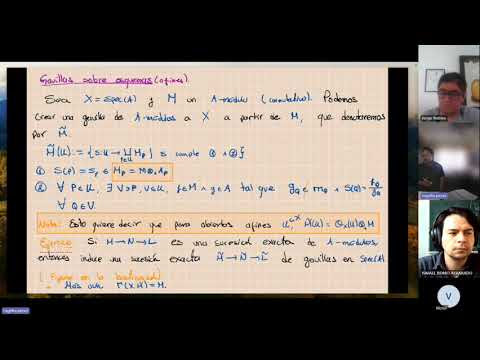 Gavillas sobre esquemas (afines).
Sea X = Spec(A) y M un A-módulo (conmutativo). Podemos
crear una gavilla de A-módulos a X a partir de M, que denotaremos
por M̃.
M̃(U) := {s: U → ⊔ M_p | s cumple ① ∧ ②}
p∈U
① s(p) = s_p ∈ M_p = M⊗_A A_p
② ∀ P∈U, ∃ V∋P, V⊆U, f∈M ∧ g∈A tal que g_Q ∉ m_p ∧ s(Q) = f_Q/g_Q
∀ Q∈V.
Nota: Esto quiere decir que para abiertos afines U ⊂ X, M̃(U) = O_X(U)⊗_A M
Ejercicio: Si M→N→L es una sucesión exacta de A-módulos
entonces induce una sucesión exacta M̃→Ñ→L̃ de gavillas en Spec(A)
(Fijarse en la localización)
Más aún Γ(X,M̃) = M.
V